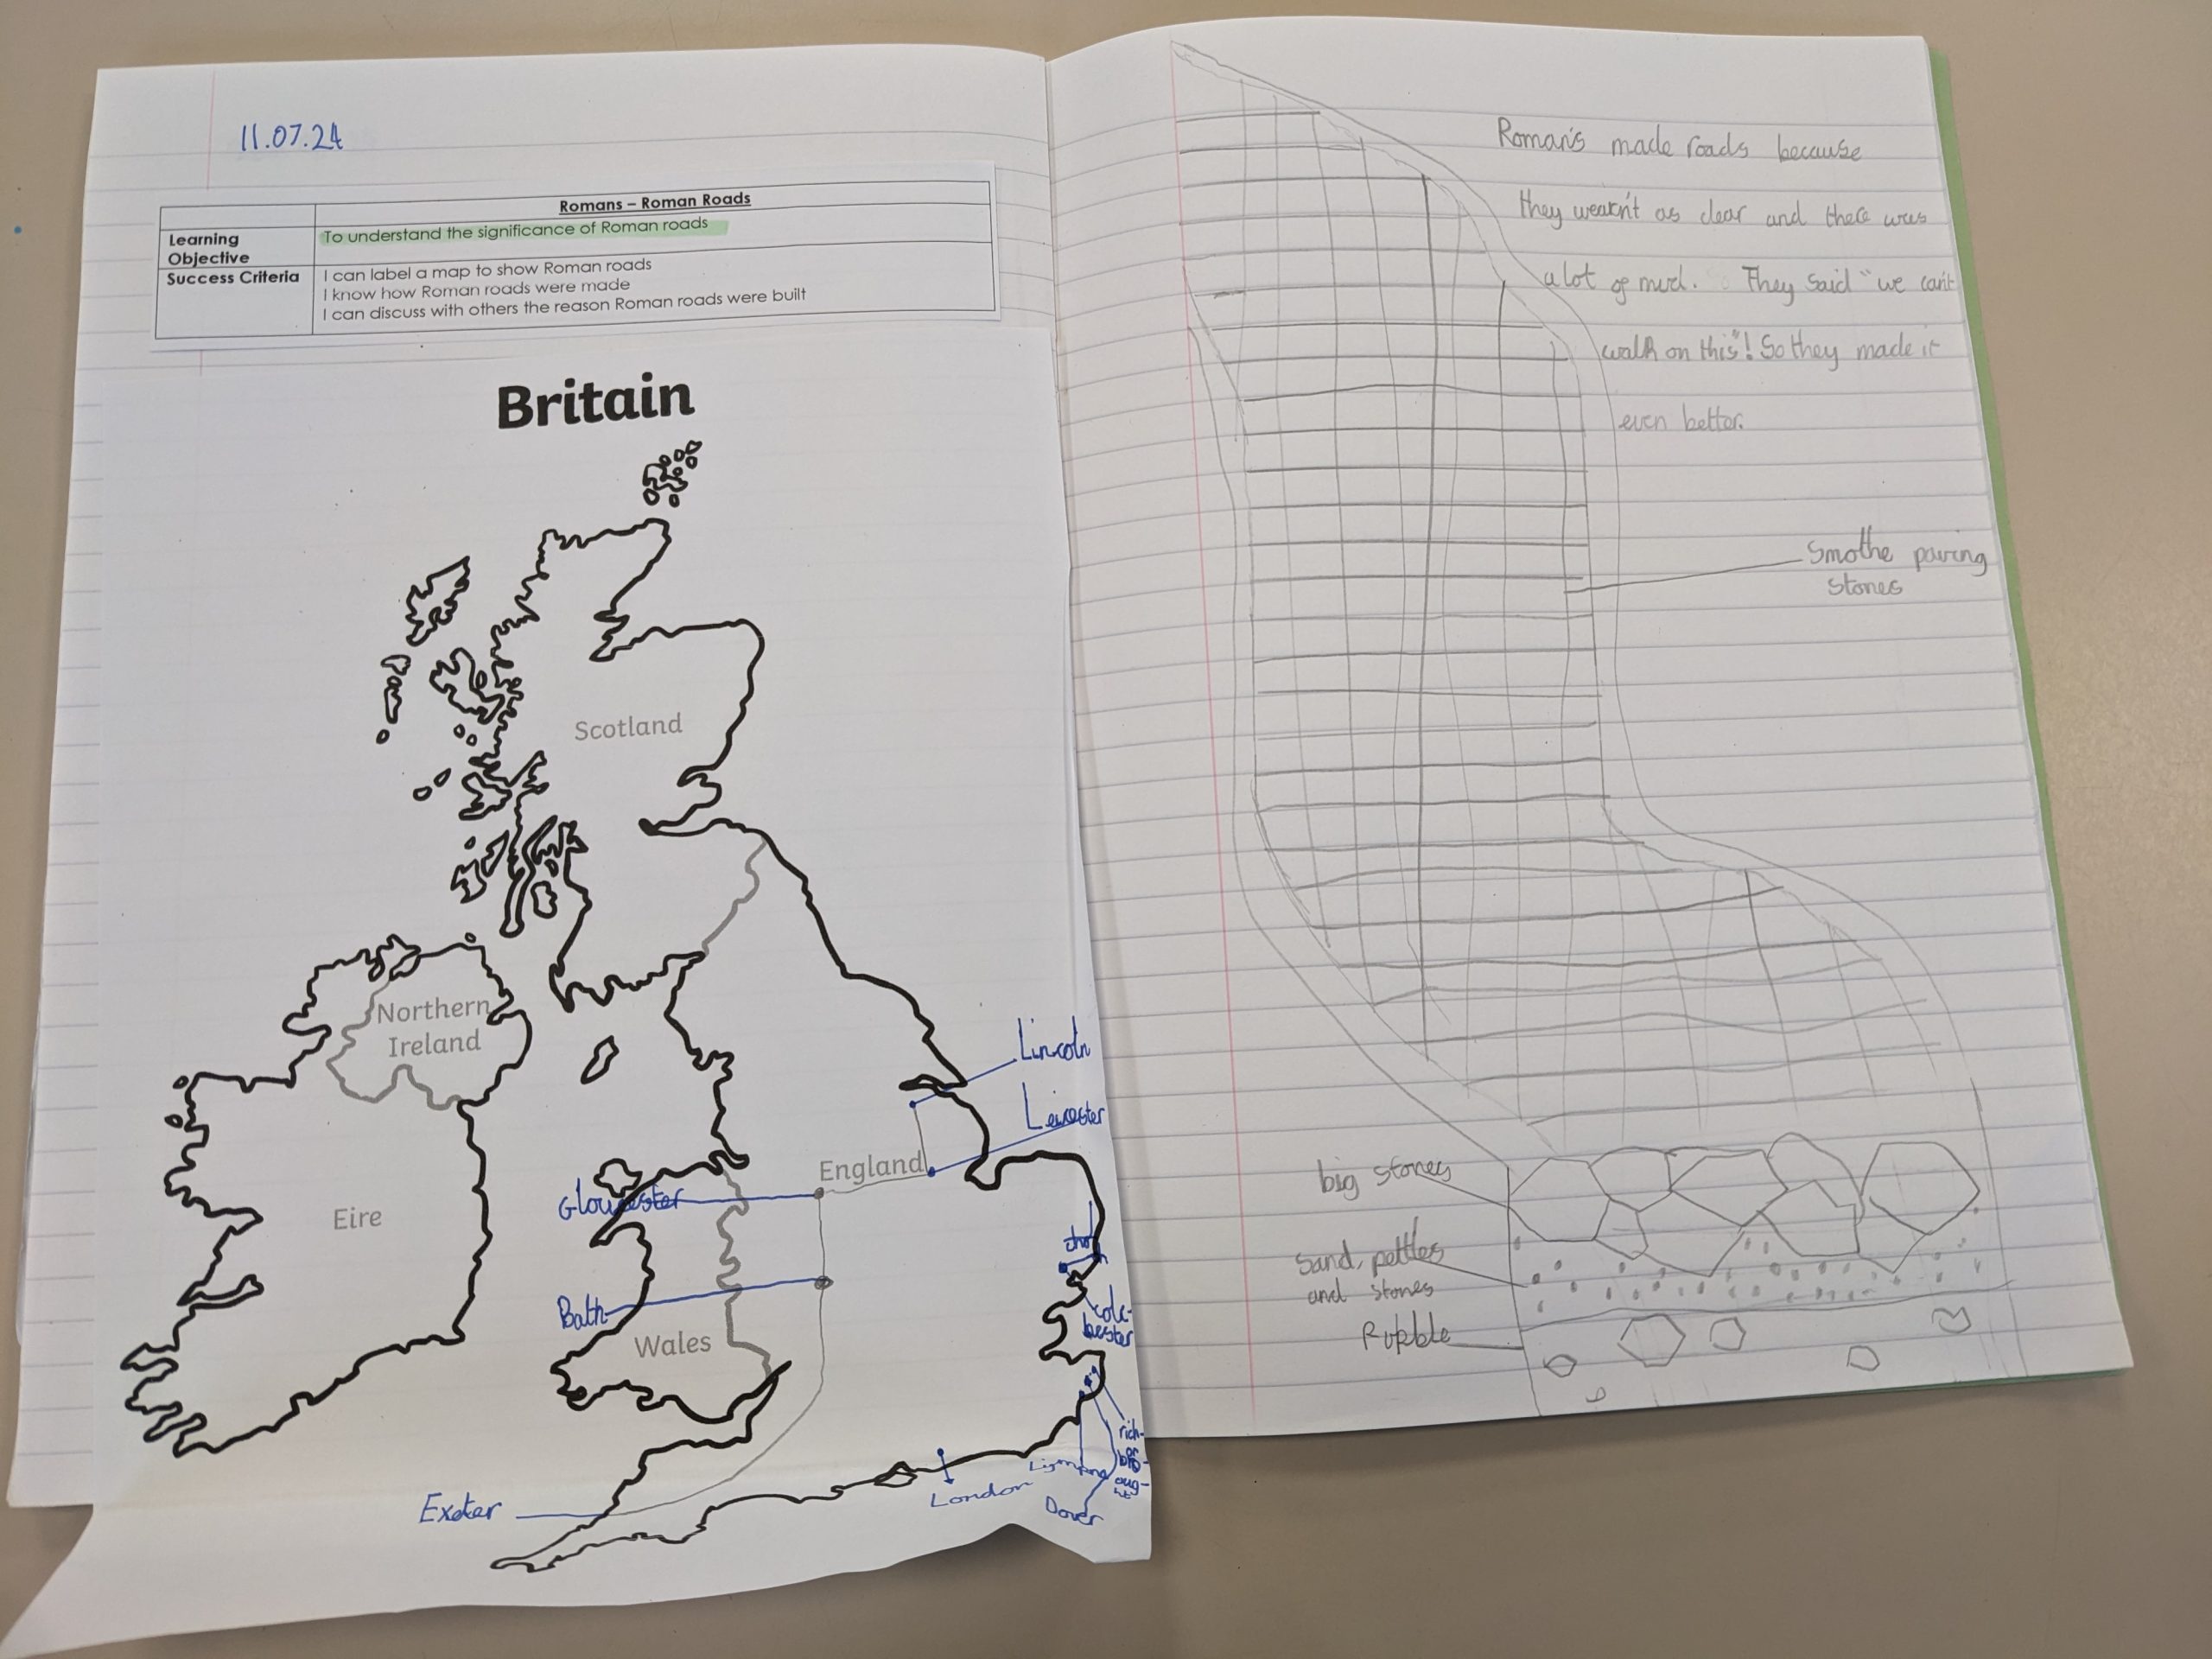 11.07.24
Romans – Roman Roads
Learning Objective
To understand the significance of Roman roads
Success Criteria
I can label a map to show Roman roads
I know how Roman roads were made
I can discuss with others the reason Roman roads were built
Britain
Scotland
Northern
Ireland
Lincoln
Leicester
England
Gloucester
Eire
Bath
Wales
colc-
hester
rich-
Lympne
London
Dover
Exeter
Roman's made roads because
they wearn't as clear and there was
a lot of mud. They said "we can't
walk on this"! So they made it
even better.
Smothe paving
stones
big stones
Sand, pettles
and stones
Rubble